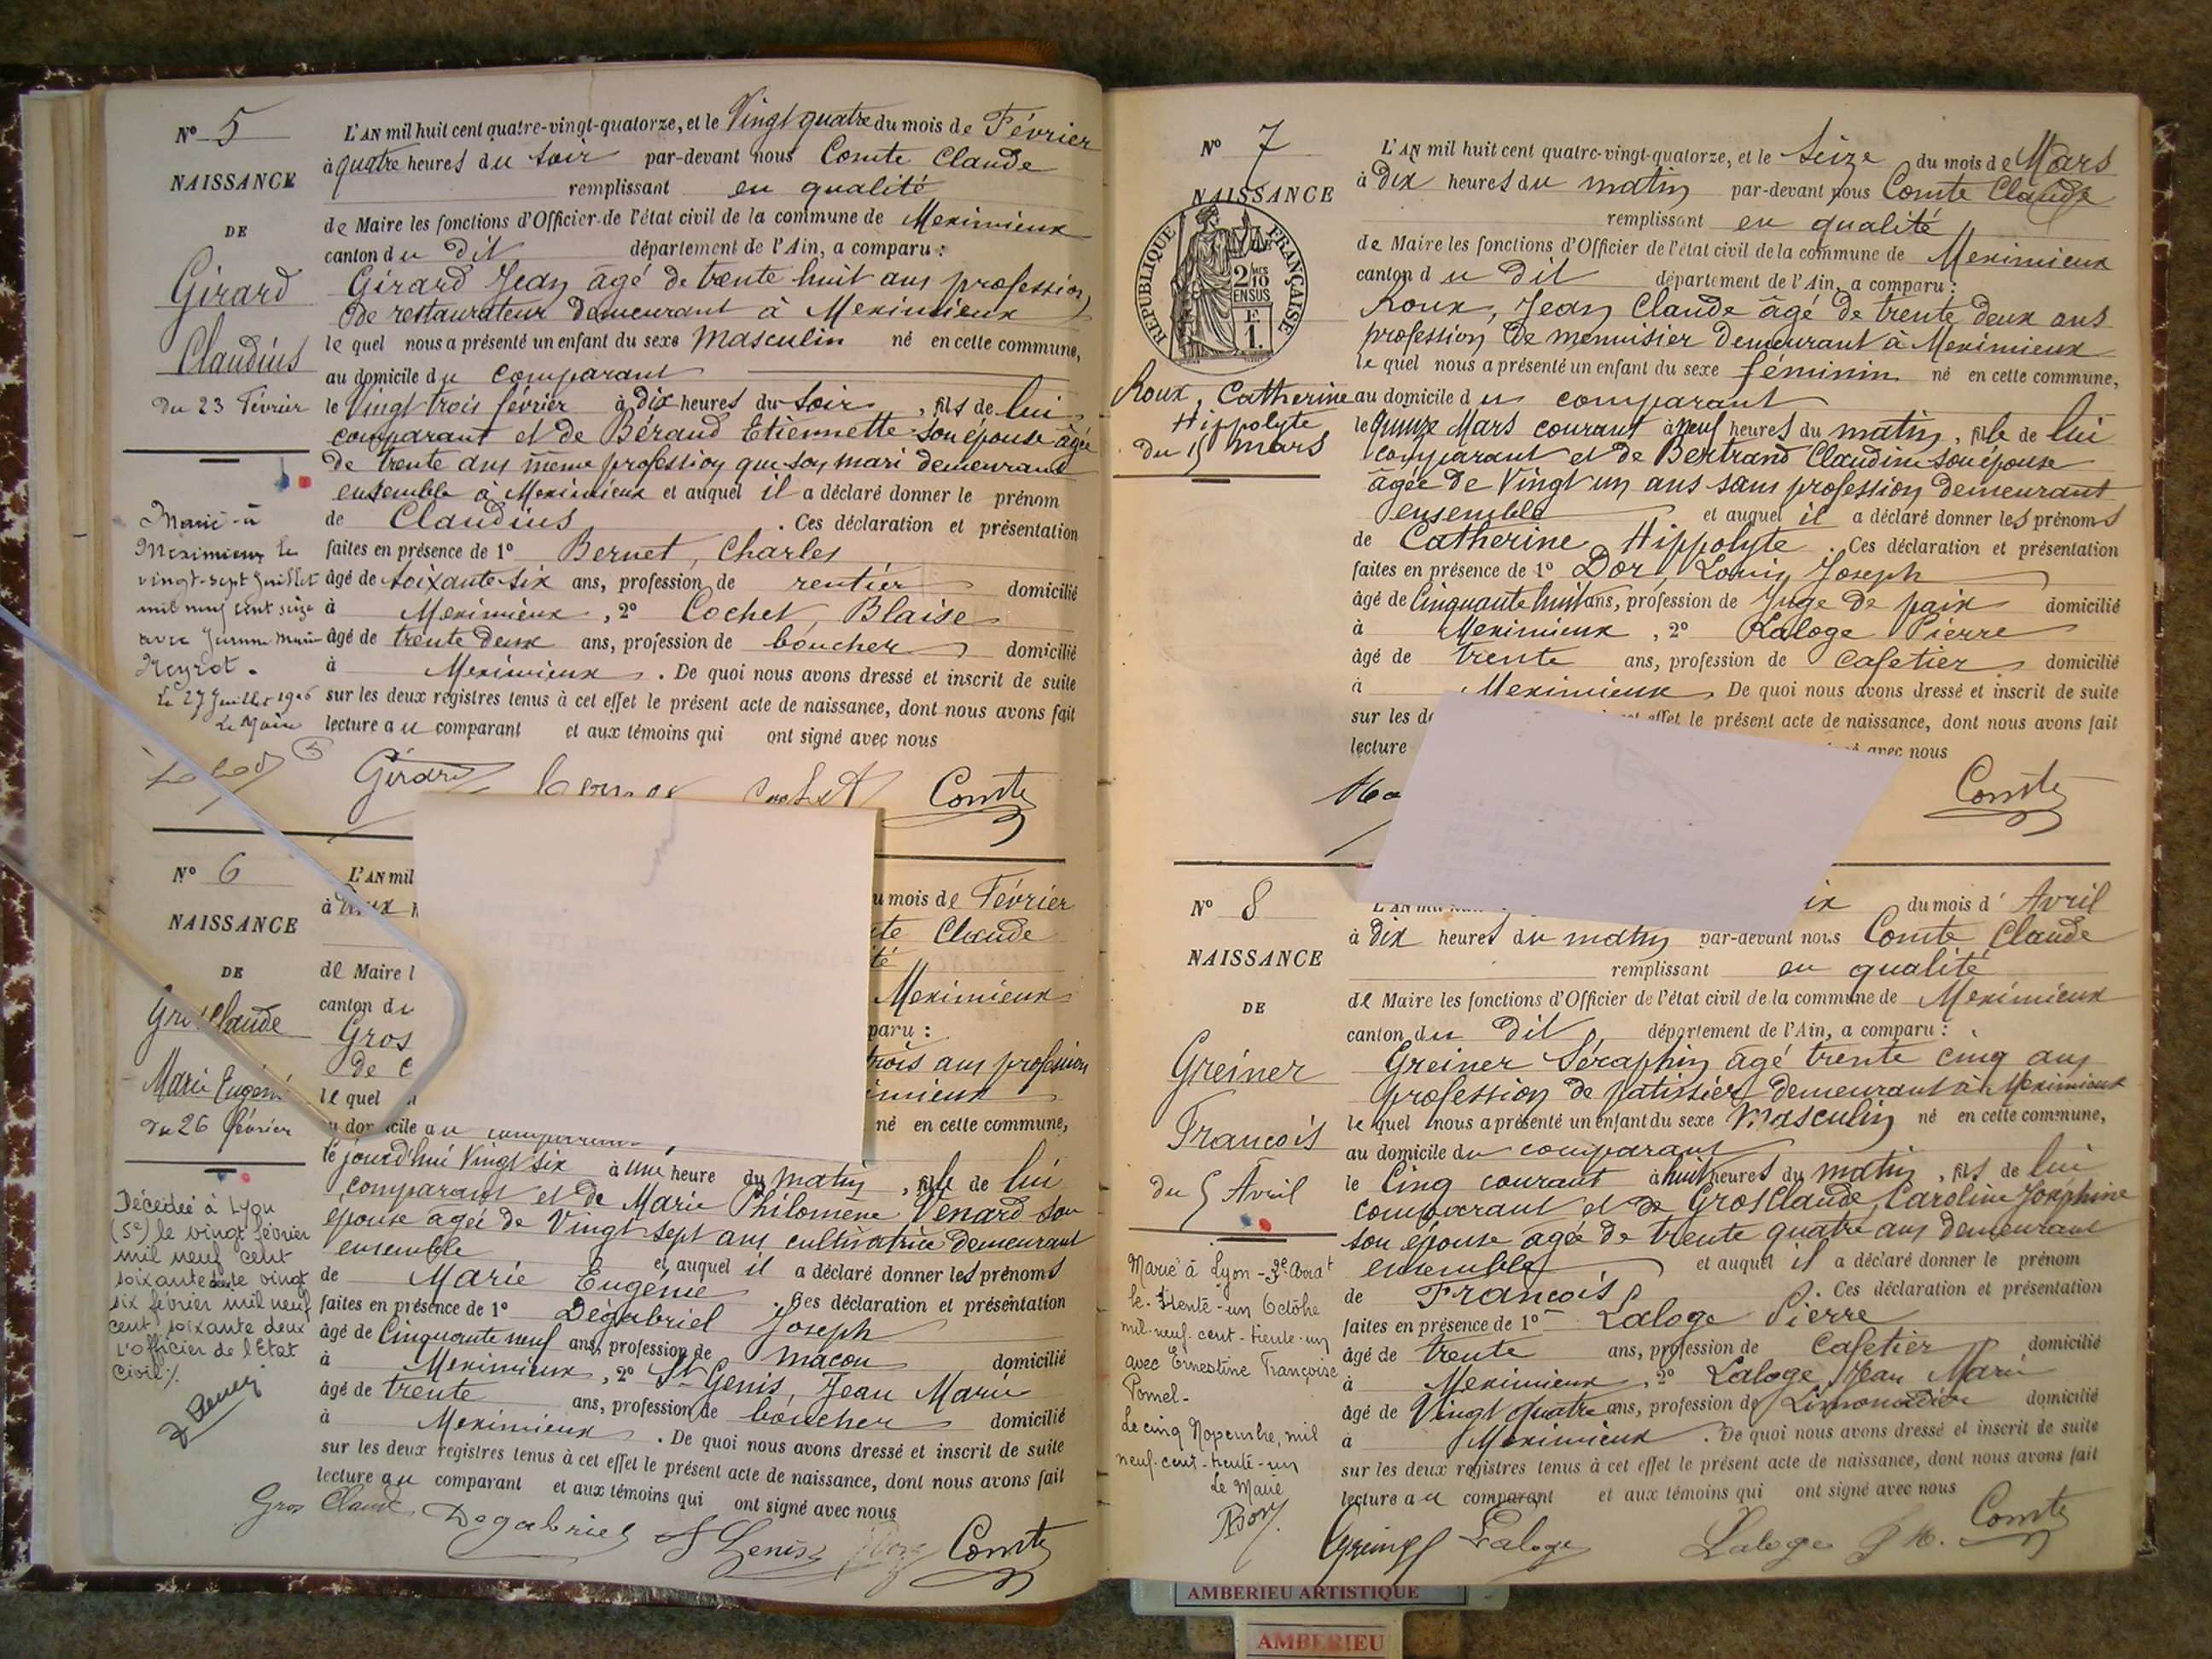 N° 5
NAISSANCE
DE
Girard
Claudius
du 23 Février
Marié à
Meximieux le
vingt-sept Juillet
mil neuf cent seize
avec Jeanne Marie
Neyrot.
Le 27 Juillet 1916
Le Maire
L'AN mil huit cent quatre-vingt-quatorze, et le Vingt quatre du mois de Février
à quatre heures du soir par-devant nous Comte Claude
remplissant en qualité
de Maire les fonctions d'Officier de l'état civil de la commune de Meximieux
canton du dit département de l'Ain, a comparu :
Girard Jean âgé de trente huit ans profession
de restaurateur demeurant à Meximieux
le quel nous a présenté un enfant du sexe Masculin né en cette commune,
au domicile du comparant
le Vingt trois février à dix heures du soir, fils de lui
comparant et de Béraud Etiennette son épouse âgée
de trente ans même profession que son mari demeurant
ensemble à Meximieux et auquel il a déclaré donner le prénom
de Claudius . Ces déclaration et présentation
faites en présence de 1° Bernet, Charles
âgé de soixante six ans, profession de rentier domicilié
à Meximieux, 2° Cochet, Blaise
âgé de trente deux ans, profession de boucher domicilié
à Meximieux . De quoi nous avons dressé et inscrit de suite
sur les deux registres tenus à cet effet le présent acte de naissance, dont nous avons fait
lecture au comparant et aux témoins qui ont signé avec nous
Girard Comte
N° 6
NAISSANCE
DE
Gros Claude
Marie Eugénie
du 26 février
Décédée à Lyon
(5e) le vingt février
mil neuf cent
soixante deux vingt
six février mil neuf
cent soixante deux
L'officier de l'Etat
Civil %
L'AN mil u mois de Février
à deux te Claude
té
de Maire l Meximieux
canton du paru :
Gros trois ans profession
de c imieux
le quel né en cette commune,
domicile du comparant
le jourd'hui Vingt six à une heure du matin, fille de lui
comparant et de Marie Philomène Venard son
épouse âgée de Vingt sept ans cultivatrice demeurant
ensemble et auquel il a déclaré donner les prénoms
de Marie Eugénie . Ces déclaration et présentation
faites en présence de 1° Dégabriel Joseph
âgé de Cinquante neuf ans, profession de macon domicilié
à Meximieux, 2° St Genis, Jean Marie
âgé de trente ans, profession de boucher domicilié
à Meximieux . De quoi nous avons dressé et inscrit de suite
sur les deux registres tenus à cet effet le présent acte de naissance, dont nous avons fait
lecture au comparant et aux témoins qui ont signé avec nous
Gros Claude Degabriel St Genis Comte
N° 7
NAISSANCE
REPUBLIQUE FRANÇAISE
2/10 EN SUS
1F.
Roux, Catherine
Hippolyte
du 15 mars
L'AN mil huit cent quatre-vingt-quatorze, et le Seize du mois de Mars
à Dix heures du matin par-devant nous Comte Claude
remplissant en qualité
de Maire les fonctions d'Officier de l'état civil de la commune de Meximieux
canton du dit département de l'Ain, a comparu :
Roux, Jean Claude âgé de trente deux ans
profession de menuisier demeurant à Meximieux
le quel nous a présenté un enfant du sexe féminin né en cette commune,
au domicile du comparant
le Quinze Mars courant à neuf heures du matin, fille de lui
comparant et de Bertrand Claudine son épouse
âgée de Vingt un ans sans profession demeurant
ensemble et auquel il a déclaré donner les prénoms
de Catherine Hippolyte . Ces déclaration et présentation
faites en présence de 1° Dor, Louis Joseph
âgé de Cinquante huit ans, profession de Juge de paix domicilié
à Meximieux, 2° Laloge Pierre
âgé de trente ans, profession de cafetier domicilié
à Meximieux . De quoi nous avons dressé et inscrit de suite
sur les de effet le présent acte de naissance, dont nous avons fait
lecture avec nous
Comte
N° 8
NAISSANCE
DE
Greiner
Francois
du 5 Avril
Marié à Lyon - 3e Arrt
le trente-un Octobre
mil-neuf-cent-trente-un
avec Ernestine Françoise
Pomel-
Le cinq Novembre, mil
neuf-cent-trente-un
Le Maire
ix du mois d' Avril
à dix heures du matin par-devant nous Comte Claude
remplissant en qualité
de Maire les fonctions d'Officier de l'état civil de la commune de Meximieux
canton du dit département de l'Ain, a comparu :
Greiner Séraphin âgé trente cinq ans
profession de patissier demeurant à Meximieux
le quel nous a présenté un enfant du sexe Masculin né en cette commune,
au domicile du comparant
le Cinq courant à huit heures du matin, fils de lui
comparant et de GrosClaude, Caroline Joséphine
son épouse âgée de trente quatre ans demeurant
ensemble et auquel il a déclaré donner le prénom
de Francois . Ces déclaration et présentation
faites en présence de 1° Laloge Pierre
âgé de trente ans, profession de Cafetier domicilié
à Meximieux, 2° Laloge Jean Marie
âgé de Vingt quatre ans, profession de Limonadier domicilié
à Meximieux . De quoi nous avons dressé et inscrit de suite
sur les deux registres tenus à cet effet le présent acte de naissance, dont nous avons fait
lecture au comparant et aux témoins qui ont signé avec nous
Laloge Laloge J M. Comte
AMBERIEU ARTISTIQUE
AMBERIEU